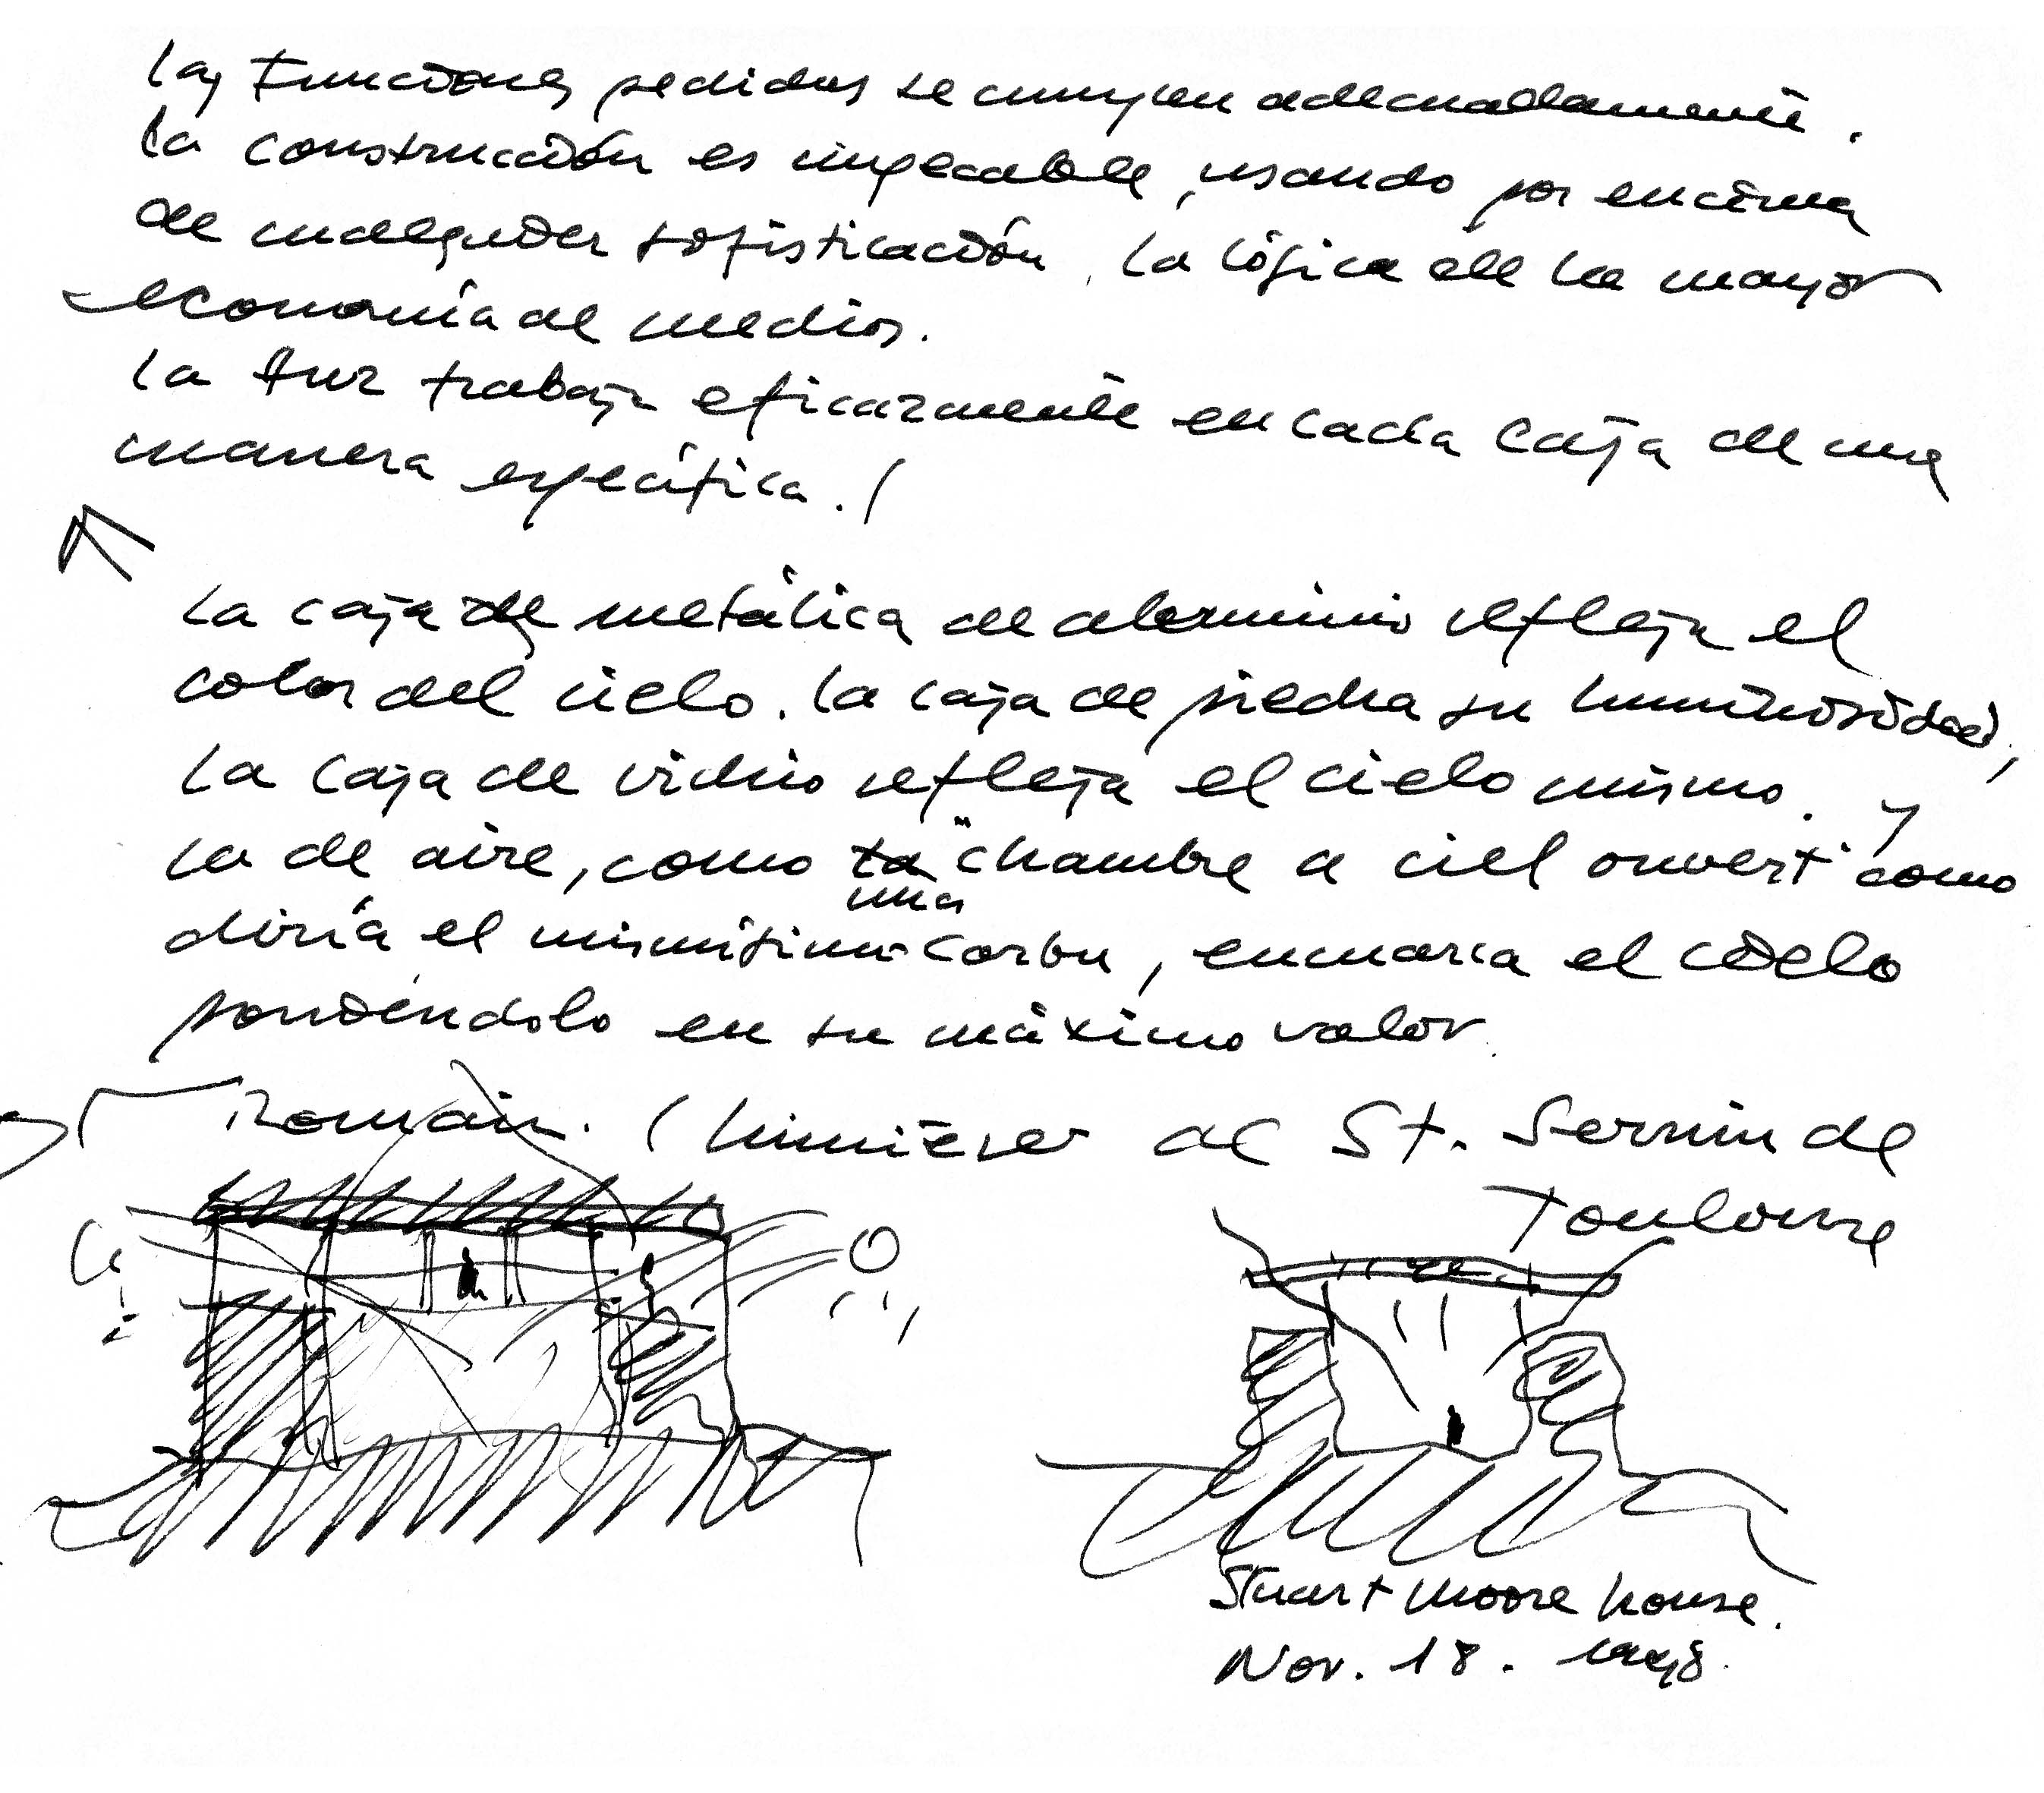 las funciones pedidas se cumplen adecuadamente.
la construcción es impecable, usando por encima
de cualquier sofisticación, la lógica de la mayor
economía de medios.
la luz trabaja eficazmente en cada caja de una
manera específica.
la caja metálica de aluminio refleja el
color del cielo. la caja de piedra su luminosidad,
la caja de vidrio refleja el cielo mismo. y
la de aire, como una "chambre a ciel ouvert" como
diría el mismísimo Corbu, enmarca el cielo
poniéndolo en su máximo valor.
Romain. ( al St. Sernin de
Toulouse
Stuart Moore house.
Nov. 18.